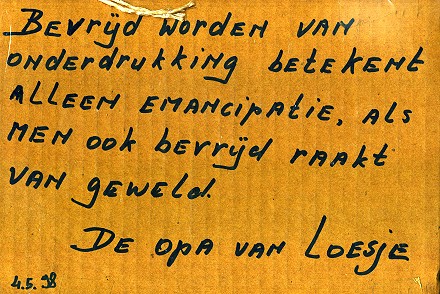 Bevrijd worden van
onderdrukking betekent
alleen emancipatie, als
men ook bevrijd raakt
van geweld.
De opa van Loesje
4.5.98